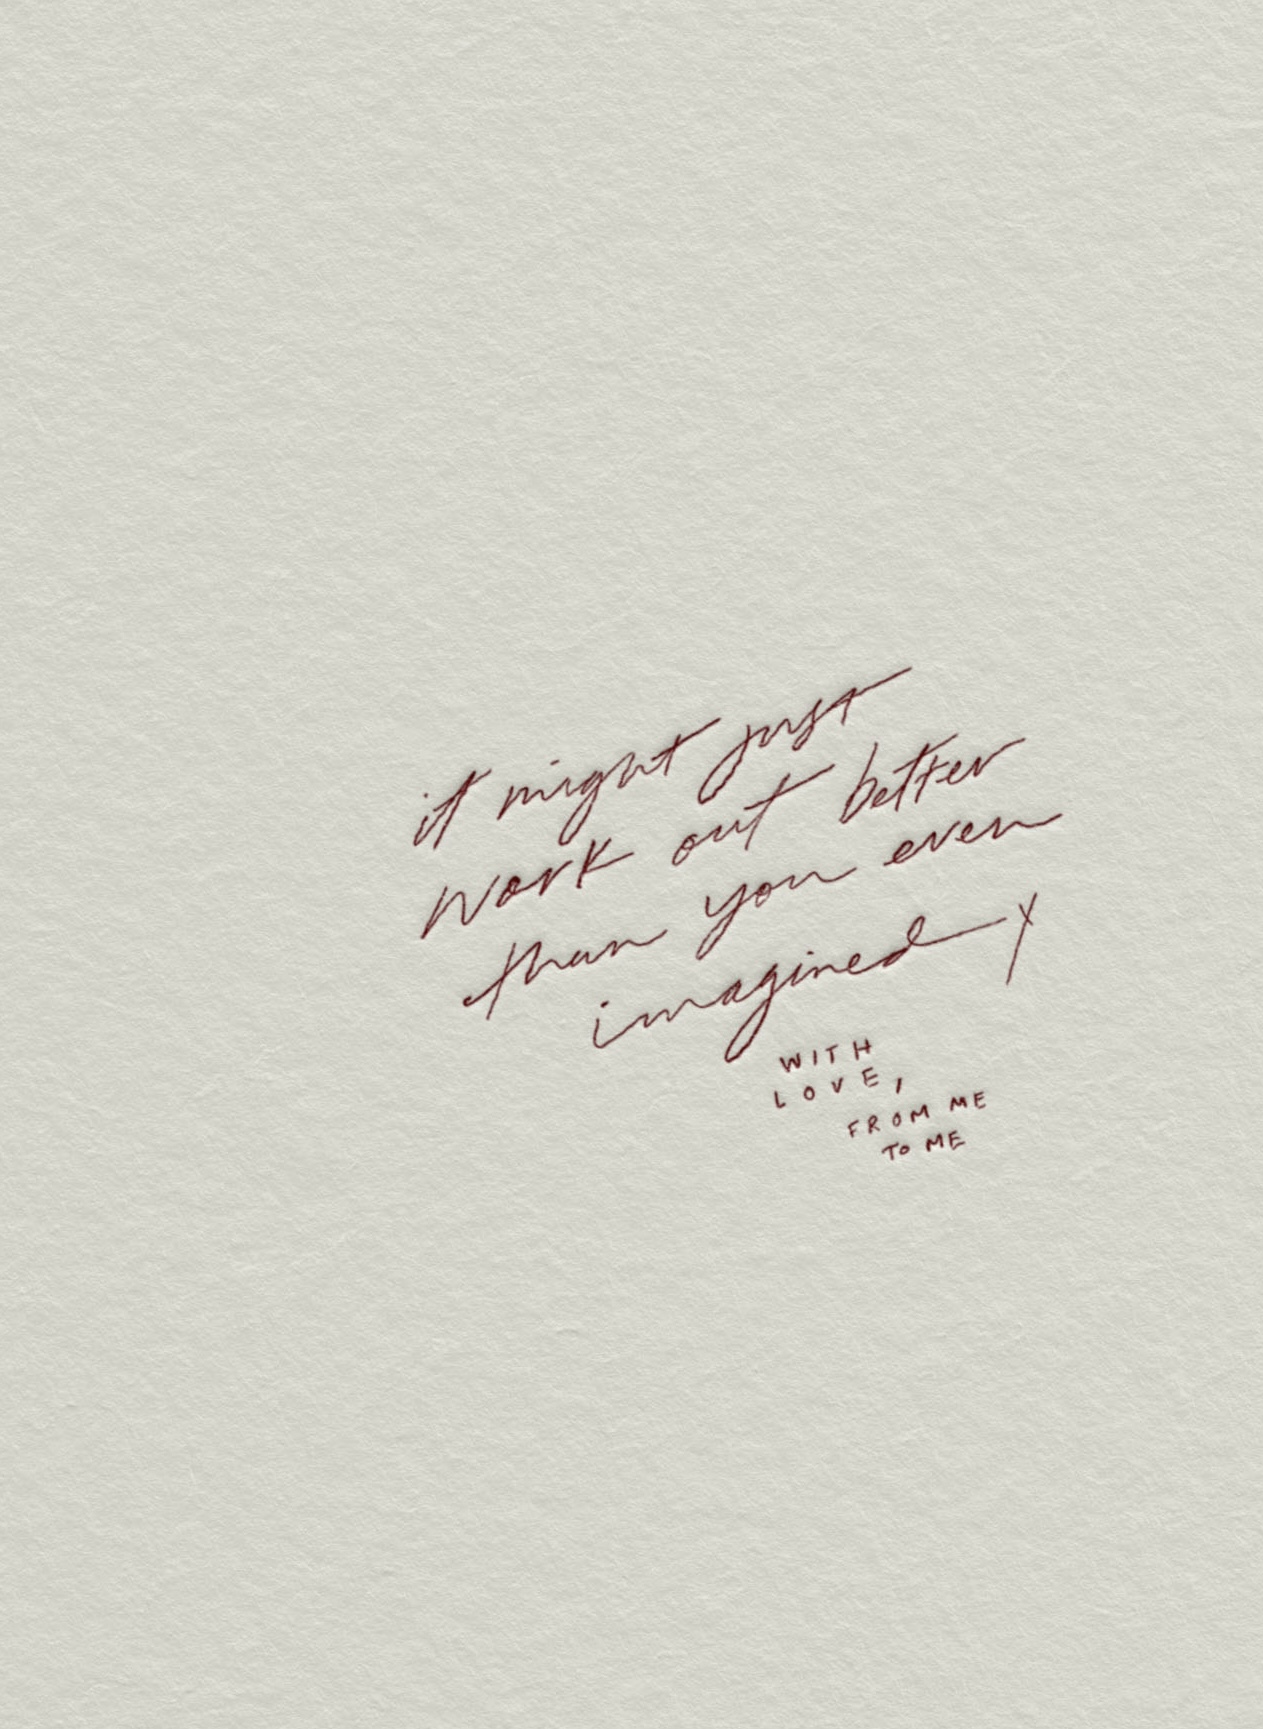 it might just
work out better
than you even
imagined x
WITH
LOVE,
FROM ME
TO ME